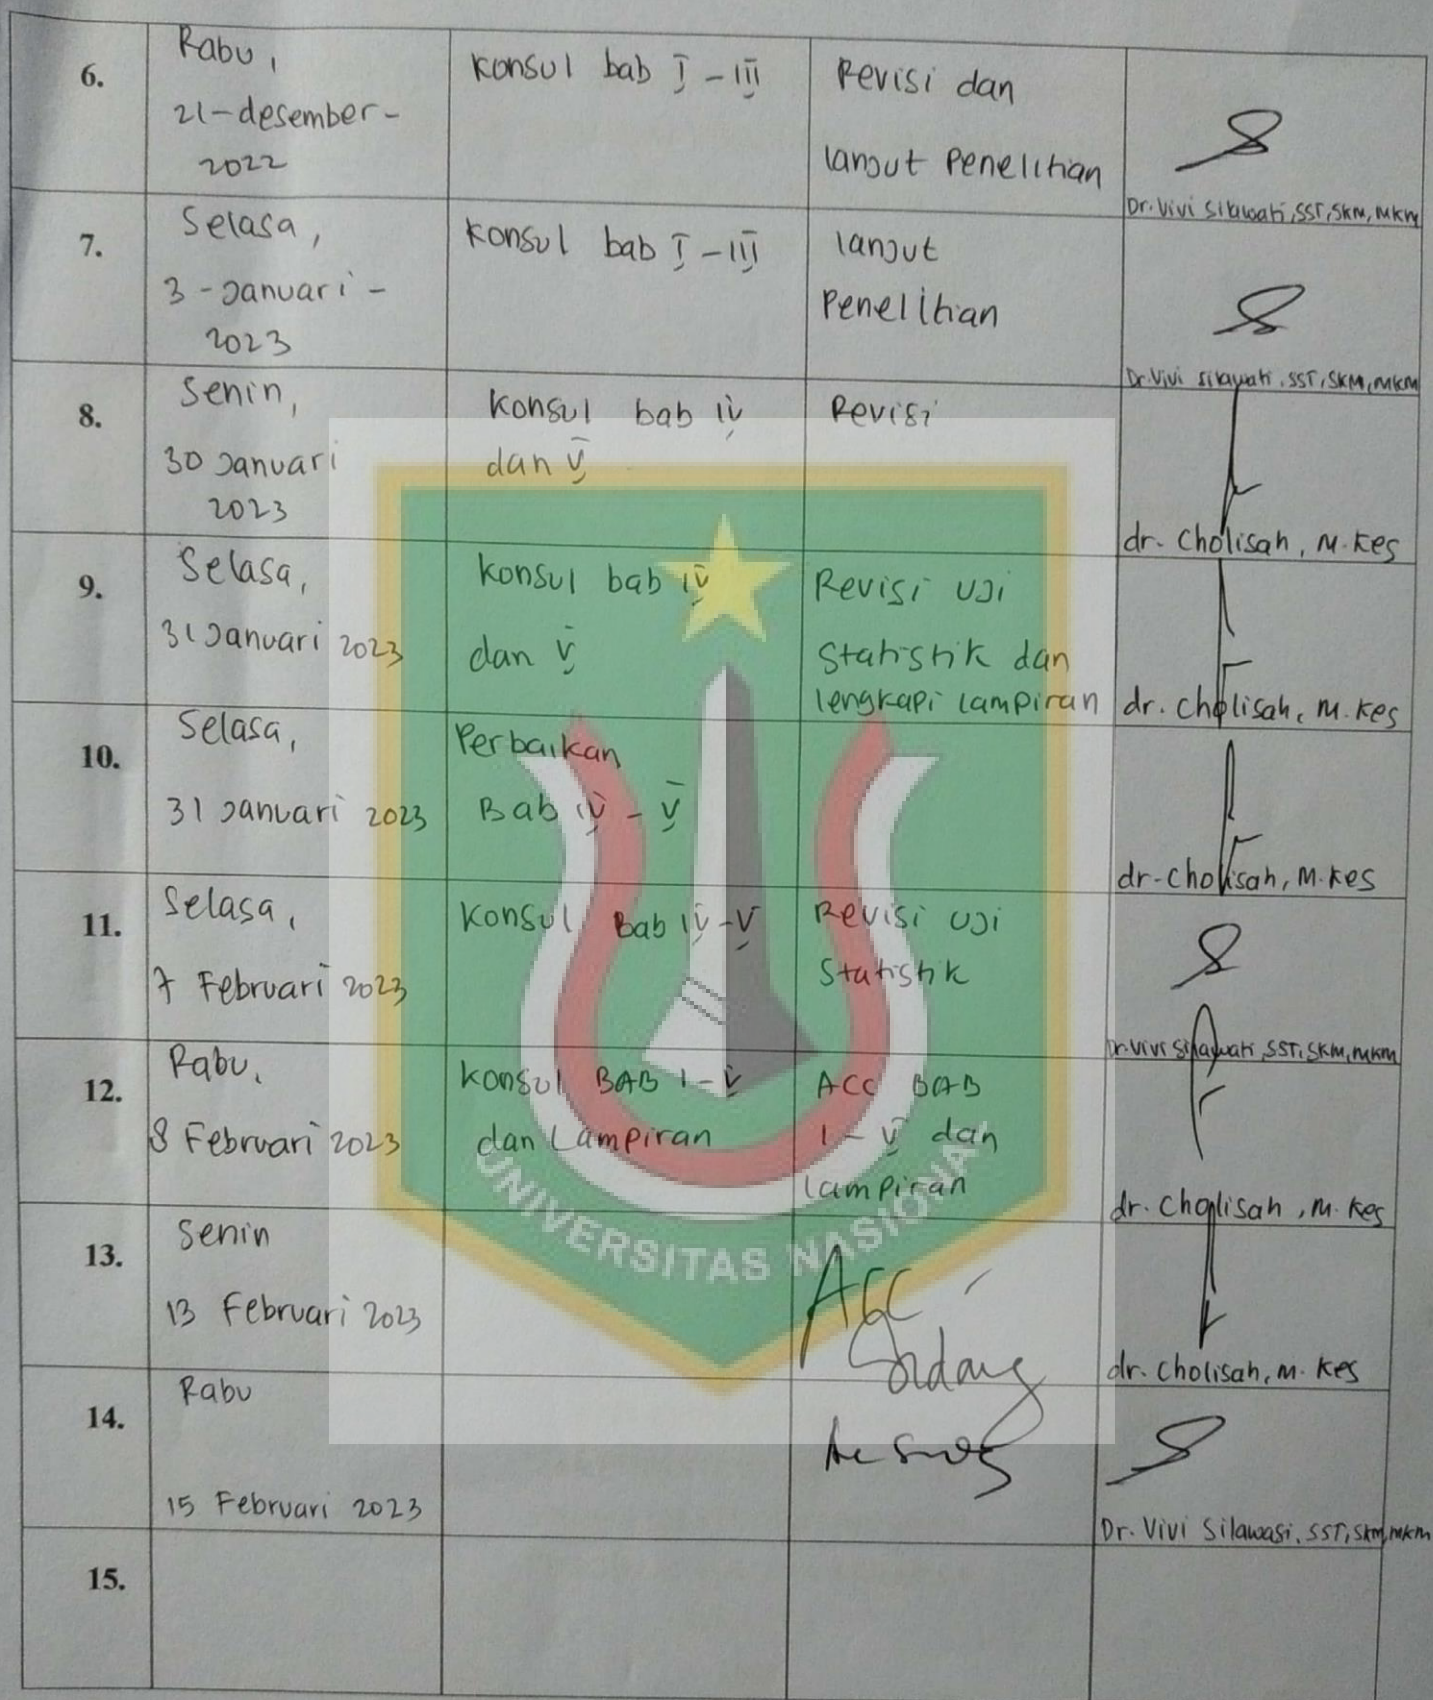 6.
Rabu,
21-desember-
2022
Konsul bab I - III
Revisi dan
lanjut Penelitian
Dr. Vivi Silawati, SST, SKM, MKM
7.
Selasa,
3 - Januari -
2023
Konsul bab I - III
lanjut
Penelitian
Dr. Vivi Silawati, SST, SKM, MKM
8.
Senin,
30 Januari
2023
Konsul bab IV
dan V
Revisi
dr. Cholisah, M.Kes
9.
Selasa,
31 Januari 2023
Konsul bab IV
dan V
Revisi Uji
Statistik dan
lengkapi lampiran
dr. Cholisah, M.Kes
10.
Selasa,
31 Januari 2023
Perbaikan
Bab IV - V
dr. Cholisah, M.Kes
11.
Selasa,
7 Februari 2023
Konsul Bab IV - V
Revisi Uji
Statistik
Dr. Vivi Silawati, SST, SKM, MKM
12.
Rabu,
8 Februari 2023
Konsul BAB I - V
dan Lampiran
ACC BAB
I - V dan
lampiran
dr. Cholisah, M.Kes
13.
Senin
13 Februari 2023
ACC
Sidang
dr. Cholisah, M.Kes
14.
Rabu
15 Februari 2023
Dr. Vivi Silawasi, SST, SKM, MKM
15.
UNIVERSITAS NASIONAL